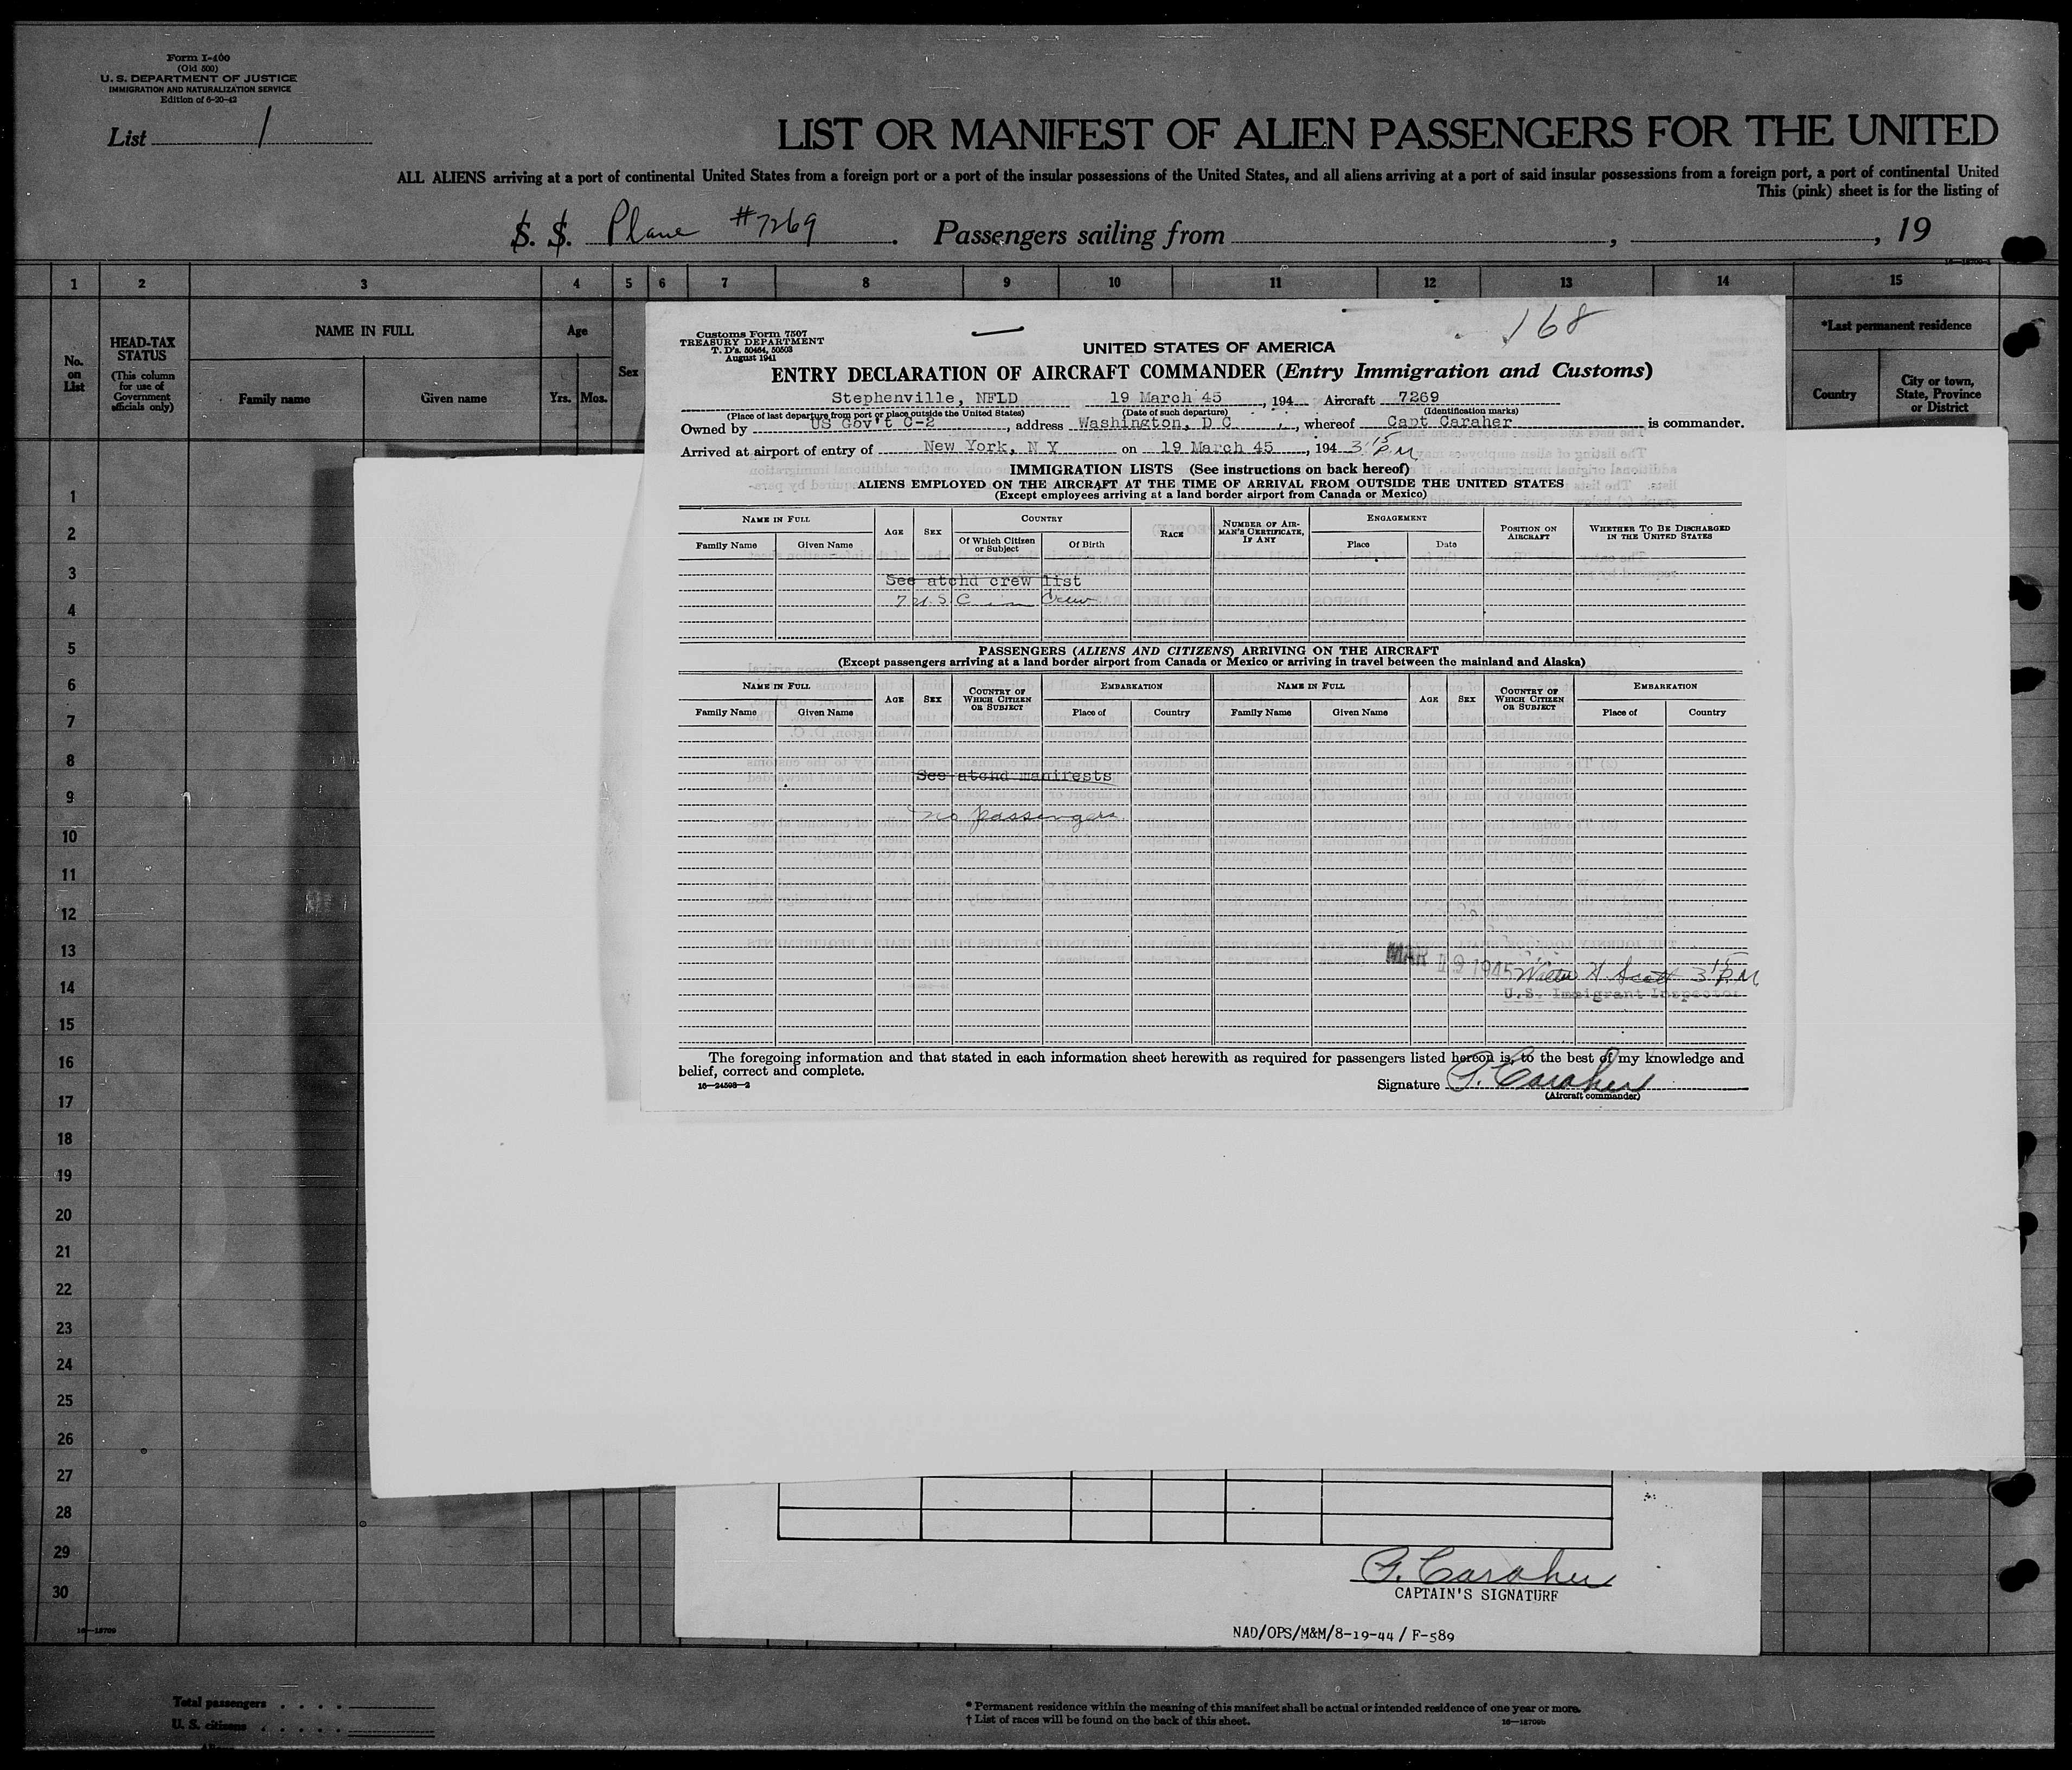 Form I-400
(Old 500)
U. S. DEPARTMENT OF JUSTICE
IMMIGRATION AND NATURALIZATION SERVICE
Edition of 6-20-42
List 1
LIST OR MANIFEST OF ALIEN PASSENGERS FOR THE UNITED
ALL ALIENS arriving at a port of continental United States from a foreign port or a port of the insular possessions of the United States, and all aliens arriving at a port of said insular possessions from a foreign port, a port of continental United
This (pink) sheet is for the listing of
S. S. Plane #7269 . Passengers sailing from , , 19
1 2 3 4 5 6 7 8 9 10 11 12 13 14 15
No. on List
HEAD-TAX STATUS
(This column for use of Government officials only)
NAME IN FULL
Family name Given name
Age
Yrs. Mos.
Sex
*Last permanent residence
Country
City or town, State, Province or District
168
Customs Form 7507
TREASURY DEPARTMENT
T. D's. 50464, 50503
August 1941
UNITED STATES OF AMERICA
ENTRY DECLARATION OF AIRCRAFT COMMANDER (Entry Immigration and Customs)
Stephenville, NFLD 19 March 45 , 194 Aircraft 7269
(Place of last departure from port or place outside the United States) (Date of such departure) (Identification marks)
Owned by US Gov't C-2 , address Washington, D C , whereof Capt Caraher is commander.
Arrived at airport of entry of New York, N Y on 19 March 45 , 194 3:15 PM
IMMIGRATION LISTS (See instructions on back hereof)
ALIENS EMPLOYED ON THE AIRCRAFT AT THE TIME OF ARRIVAL FROM OUTSIDE THE UNITED STATES
(Except employees arriving at a land border airport from Canada or Mexico)
NAME IN FULL
Family Name Given Name
AGE SEX
COUNTRY
Of Which Citizen or Subject Of Birth
RACE
NUMBER OF AIRMAN'S CERTIFICATE, IF ANY
ENGAGEMENT
Place Date
POSITION ON AIRCRAFT
WHETHER TO BE DISCHARGED IN THE UNITED STATES
See atchd crew list
7 U.S.C. in Crew
PASSENGERS (ALIENS AND CITIZENS) ARRIVING ON THE AIRCRAFT
(Except passengers arriving at a land border airport from Canada or Mexico or arriving in travel between the mainland and Alaska)
NAME IN FULL AGE SEX COUNTRY OF WHICH CITIZEN OR SUBJECT EMBARKATION NAME IN FULL AGE SEX COUNTRY OF WHICH CITIZEN OR SUBJECT EMBARKATION
Family Name Given Name Place of Country Family Name Given Name Place of Country
See atchd manifests
no passengers
MAR 19 1945 Walter H. Scott 3:15 PM
U.S. Immigrant Inspector
The foregoing information and that stated in each information sheet herewith as required for passengers listed hereon is, to the best of my knowledge and
belief, correct and complete.
16—24598-2
Signature P. Caraher
(Aircraft commander)
1
2
3
4
5
6
7
8
9
10
11
12
13
14
15
16
17
18
19
20
21
22
23
24
25
26
27
28
29
30
16—18709
P. Caraher
CAPTAIN'S SIGNATURE
NAD/OPS/M&M/8-19-44 / F-589
Total passengers
U. S. citizens
* Permanent residence within the meaning of this manifest shall be actual or intended residence of one year or more.
† List of races will be found on the back of this sheet.
16—18709b